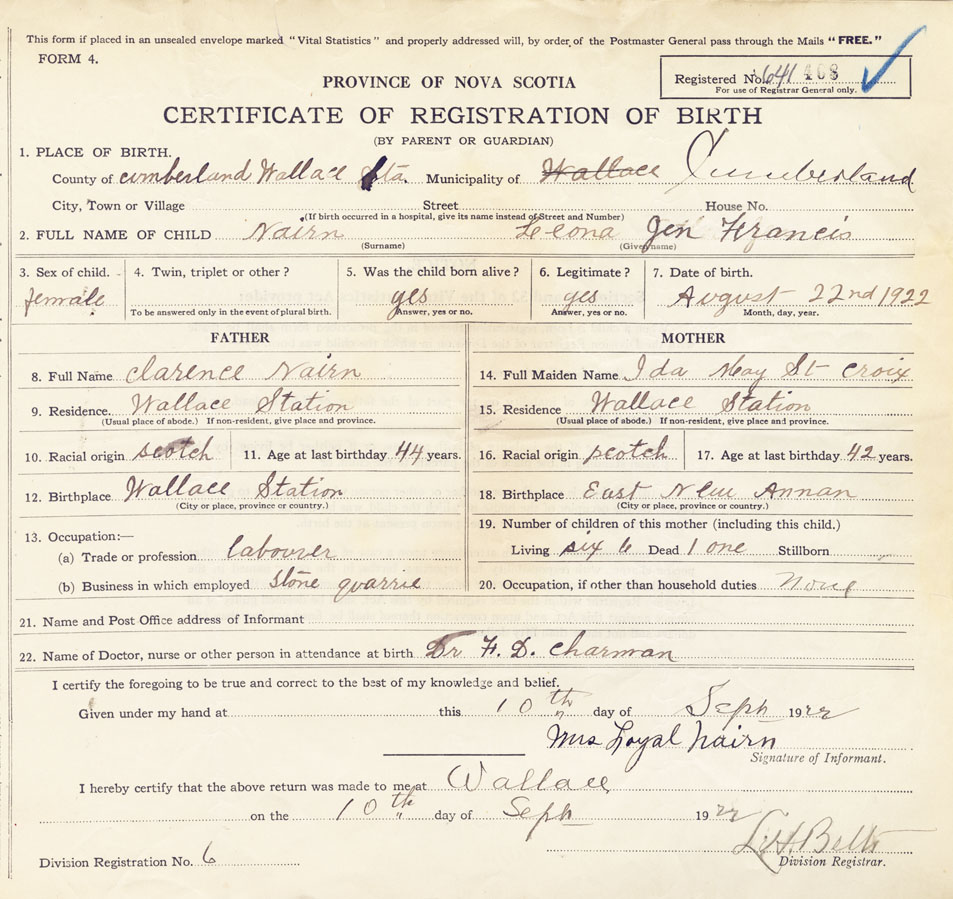 This form if placed in an unsealed envelope marked "Vital Statistics" and properly addressed will, by order of the Postmaster General pass through the Mails "FREE."
FORM 4.
PROVINCE OF NOVA SCOTIA
Registered No. 641 408
For use of Registrar General only.
CERTIFICATE OF REGISTRATION OF BIRTH
(BY PARENT OR GUARDIAN)
1. PLACE OF BIRTH.
County of cumberland Wallace Sta. Municipality of Wallace Cumberland
City, Town or Village Street House No.
(If birth occurred in a hospital, give its name instead of Street and Number)
2. FULL NAME OF CHILD Nairn Leona Jen Francis
(Surname) (Given name)
3. Sex of child. 4. Twin, triplet or other? 5. Was the child born alive? 6. Legitimate? 7. Date of birth.
female yes yes August 22nd 1922
To be answered only in the event of plural birth. Answer, yes or no. Answer, yes or no. Month, day, year.
FATHER
8. Full Name Clarence Nairn
9. Residence. Wallace Station
(Usual place of abode.) If non-resident, give place and province.
10. Racial origin scotch 11. Age at last birthday 44 years.
12. Birthplace Wallace Station
(City or place, province or country.)
13. Occupation:—
(a) Trade or profession labourer
(b) Business in which employed stone quarrie
MOTHER
14. Full Maiden Name Ida May St Croix
15. Residence Wallace Station
(Usual place of abode.) If non-resident, give place and province.
16. Racial origin scotch 17. Age at last birthday 42 years.
18. Birthplace East New Annan
(City or place, province or country.)
19. Number of children of this mother (including this child.)
Living six 6 Dead 1 one Stillborn
20. Occupation, if other than household duties None
21. Name and Post Office address of Informant
22. Name of Doctor, nurse or other person in attendance at birth Dr F. D. Charman
I certify the foregoing to be true and correct to the best of my knowledge and belief.
Given under my hand at this 10th day of Seph 1922
Mrs Loyal Nairn
Signature of Informant.
I hereby certify that the above return was made to me at Wallace
on the 10th day of Seph 1922
Division Registration No. 6
Division Registrar.